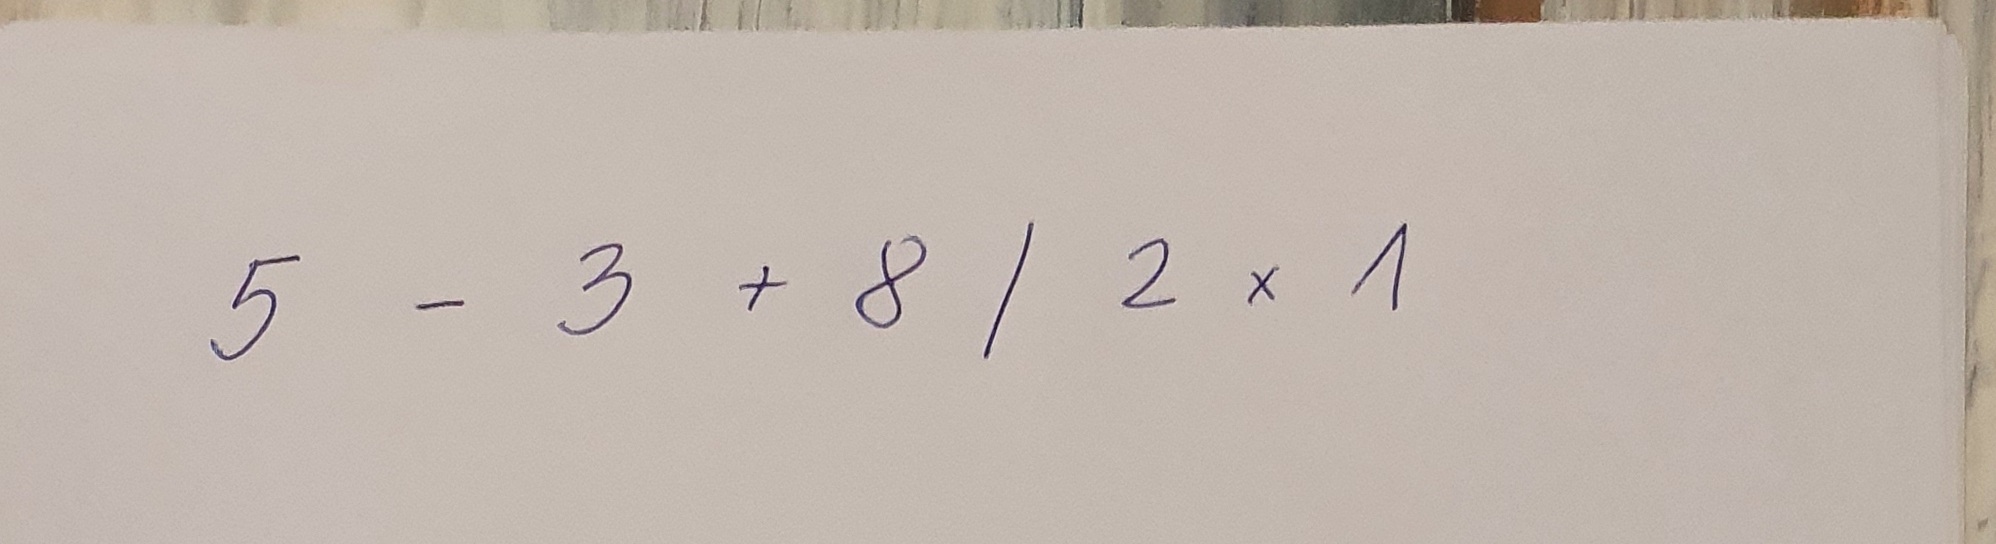 5 - 3 + 8 / 2 x 1